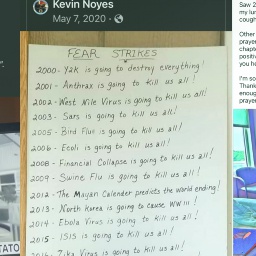 Kevin Noyes
May 7, 2020 ·
FEAR STRIKES
2000- Y2K is going to destroy everything!
2001- Anthrax is going to kill us all!
2002- West Nile Virus is going to kill us all!
2003- Sars is going to kill us all!
2005- Bird Flu is going to kill us all!
2006- Ecoli is going to kill us all!
2008- Financial Collapse is going to kill us all!
2009- Swine Flu is going to kill us all!
2012- The Mayan Calender predicts the world ending!
2013- North Korea is going to cause WW III!
2014- Ebola Virus is going to kill us all!
2015- ISIS is going to kill us all!
Zika Virus is going to kill us all!
Saw 2
my lu
cough
Other
prayer
chapt
positiv
you he
I'm so
Thank
enoug
prayer
TATO